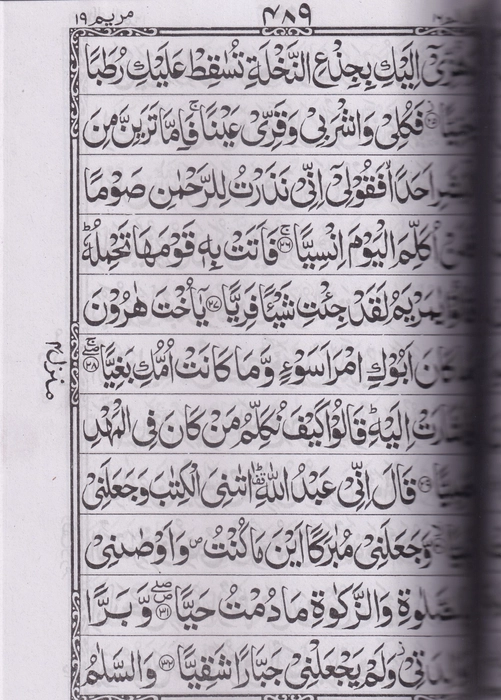 مريم ١٩
٤٨٩
اِلَيْكِ بِجِذْعِ النَّخْلَةِ تُسٰقِطْ عَلَيْكِ رُطَبًا
فَكُلِيْ وَاشْرَبِيْ وَقَرِّيْ عَيْنًا ۚ فَاِمَّا تَرَيِنَّ مِنَ
اَحَدًا فَقُوْلِيْٓ اِنِّيْ نَذَرْتُ لِلرَّحْمٰنِ صَوْمًا
اُكَلِّمَ الْيَوْمَ اِنْسِيًّا ۚ ﴿٢٦﴾ فَاَتَتْ بِهٖ قَوْمَهَا تَحْمِلُهٗ ؕ
يٰمَرْيَمُ لَقَدْ جِئْتِ شَيْـًٔا فَرِيًّا ﴿٢٧﴾ يٰٓاُخْتَ هٰرُوْنَ
كَانَ اَبُوْكِ امْرَاَ سَوْءٍ وَّمَا كَانَتْ اُمُّكِ بَغِيًّا ﴿٢٨﴾
اِلَيْهِ ؕ قَالُوْا كَيْفَ نُكَلِّمُ مَنْ كَانَ فِي الْمَهْدِ
قَالَ اِنِّيْ عَبْدُ اللّٰهِ ؕ اٰتٰىنِيَ الْكِتٰبَ وَجَعَلَنِيْ
وَّجَعَلَنِيْ مُبٰرَكًا اَيْنَ مَا كُنْتُ ۪ وَاَوْصٰىنِيْ
وَالزَّكٰوةِ مَا دُمْتُ حَيًّا ﴿٣١﴾ وَّبَرًّا
وَلَمْ يَجْعَلْنِيْ جَبَّارًا شَقِيًّا ﴿٣٢﴾ وَالسَّلٰمُ
منزل ٤